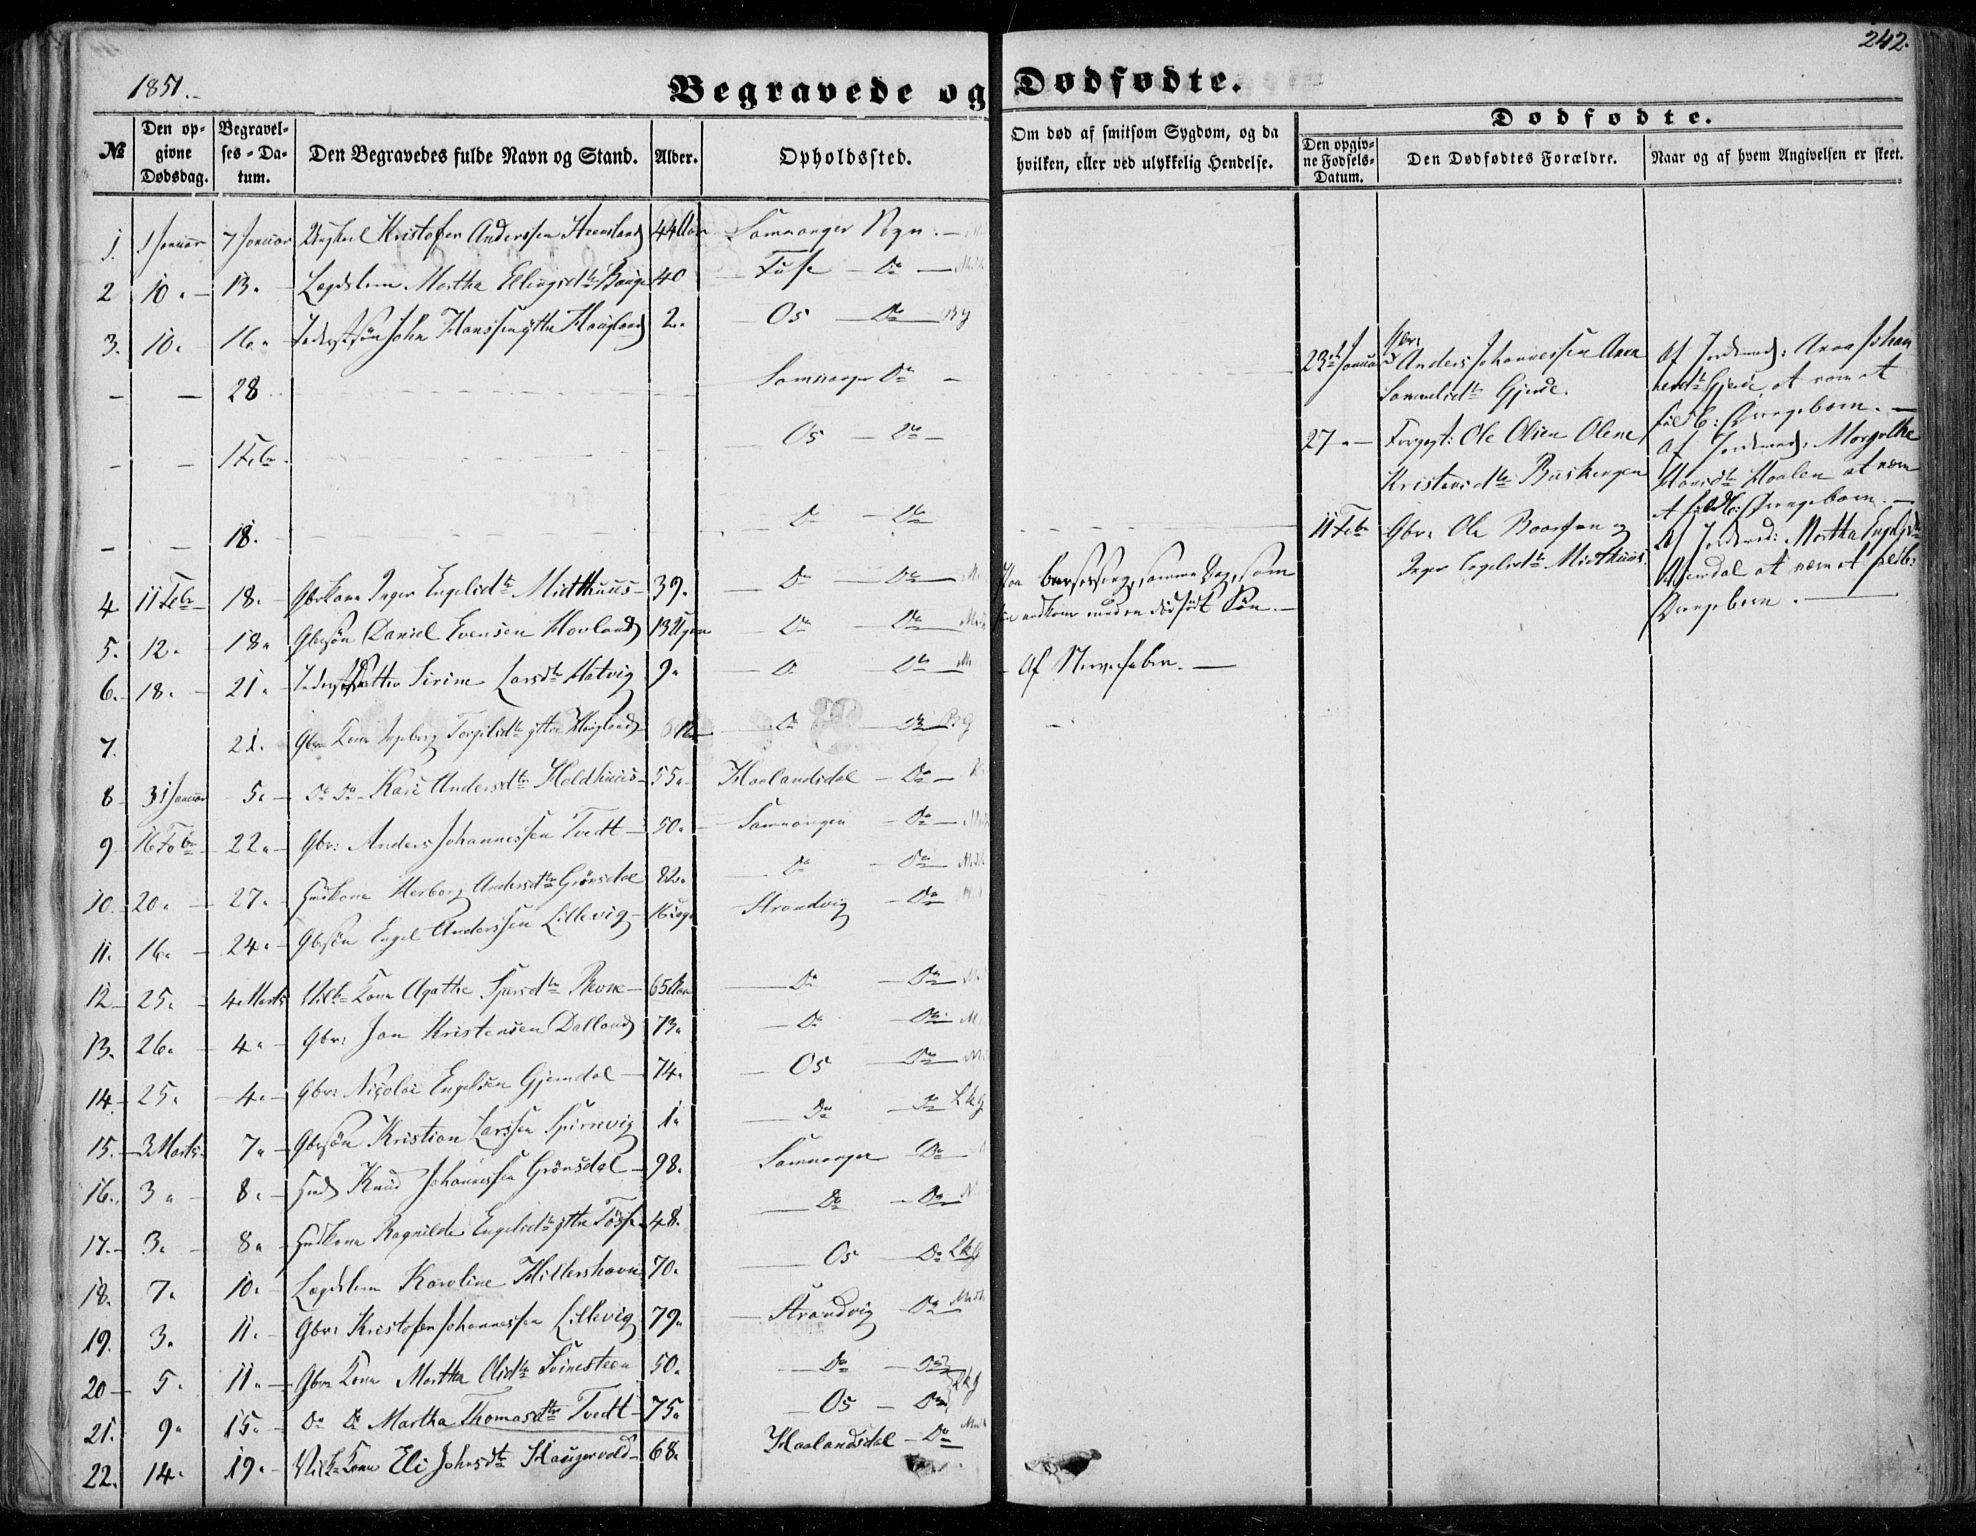 242.
1851.
Begravede og Dødfødte.
№
Den opgivne Dødsdag.
Begravelses-Datum.
Den Begravedes fulde Navn og Stand.
Alder.
Opholdssted.
Om død af smitsom Sygdom, og da hvilken, eller ved ulykkelig Hendelse.
Dødfødte.
Den opgivne Fødsels-Datum.
Den Dødfødtes Forældre.
Naar og af hvem Angivelsen er skeet.
1. 1 Januar 7 Januar Kristofer Anderssen 44 Aar Samnanger Sogn.
2 10 " 13 " Lægdslem Martha Ellingsdtr Bauge 40 Fuse Do
3. 10 " 16 " John Hanssen ytre Haugland 2 " Os Do
28 Samnanger Do
23de Januar Gbr: Anders Johannessen Anna
Samuelsdtr Gjerde.
Af Jordmod: Anna Johan
nesdtr Gjerde at være et
fuldb: Drengebarn.
1 Feb. Os Do
27 " Ole Olsen Olene
Kristensdtr Buskengen
Af Jordmod:
at være
et fuldb: Drengebarn.
18. Do Do
11 Feb Gbr: Ole Baarsen og
Inger Engelsdtr Midthuus.
Af Jordmod: Martha Engelsdtr
Gjendal at være et fuldb:
Drengebarn.
4 11 Feb 18. Gbr Kone Inger Engelsdtr Midthuus 39. Do Do
Paa Barselseng, samme Dag, som
hun nedkom med en dødfødt Søn.
5. 12. 18 " Gbrsøn Daniel Evensen Hovland 13 Uger Do Do
6. 18. 21 " Datter Sirine Larsdtr Hatvig 9 " Do Do Af Nervefeber.
7. 21. Gbr Kone Ingeborg Torgilsdtr ytre Haugland Do Do
8 31 Januar 5 " Do Do Kari Andersdtr Holdhuus 55 " Haalandsdal Do
9 16 Feb 22 " Gbr: Anders Johannessen Tvedt 50 " Samnanger Do
10. 20 " 27 " Huskone Herborg Andersdtr Grønsdal 82 " Do Do
11. 16 " 24 " Gbrsøn Engel Anderssen Lillevig 16 Dage Strandvig Do
12 25 " 4 Marts Kone Agathe Revne 65 Aar Do Do
13. 26 " 4 " Gbr: Jon Kristensen Dalland 73 " Do Do
14 25 " 4 " Gbr: Nicolai Engelsen Gjemdal 74 " Os Do
15. 3 Marts 7 " Gbrsøn Kristian Larssen Spirnevig 1 " Do Do Lkg
16. 3 " 8 " Husmd Knud Johannessen Grønsdal 98 " Samnanger Do
17. 3 " 8 " Huskone Ragnilde Engelsdtr ytre Tøsse 48. Do Do
18. 7 " 10 " Lægdslem Karoline Hillershavn 70 " Os Do Lkg
19. 3 " 11 " Gbr: Kristofer Johannessen Lillevig 79 " Strandvig Do
20 5 " 11 " Gbr Kone Martha Olsdtr Svinesteen 50 " Do Do
21. 9 " 15 " Do Do Martha Thomasdtr Tvedt 75 " Os Do Lkg
22. 14 " 19 " Kone Eli Johnsdtr Haugervold 68 " Haalandsdal Do